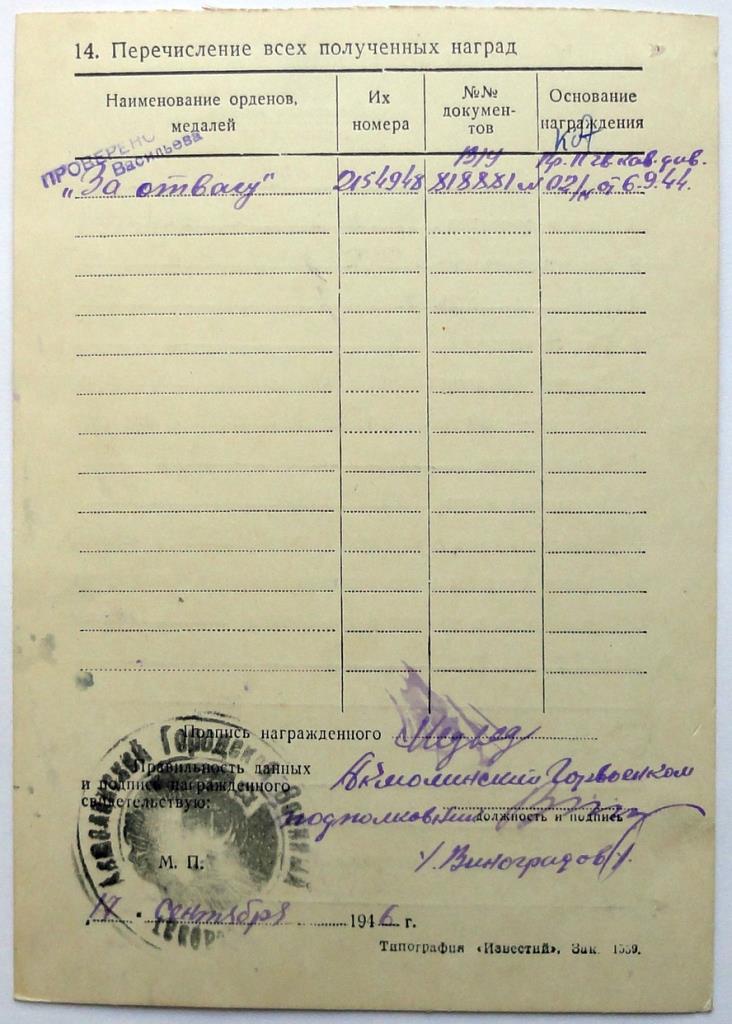 14. Перечисление всех полученных наград
Наименование орденов, медалей
Их номера
№№ документов
Основание награждения
ПРОВЕРЕНО
Васильева
„За отвагу"
2154948
818881
Пр. 11 гв. кав. див.
02/н от 6.9.44.
Подпись награжденного
Правильность данных
и подписи награжденного
свидетельствую:
Акмолинский Горвоенком
подполковник
должность и подпись
/Виноградов/.
М. П.
сентября 1946 г.
Типография «Известий». Зак. 1559.